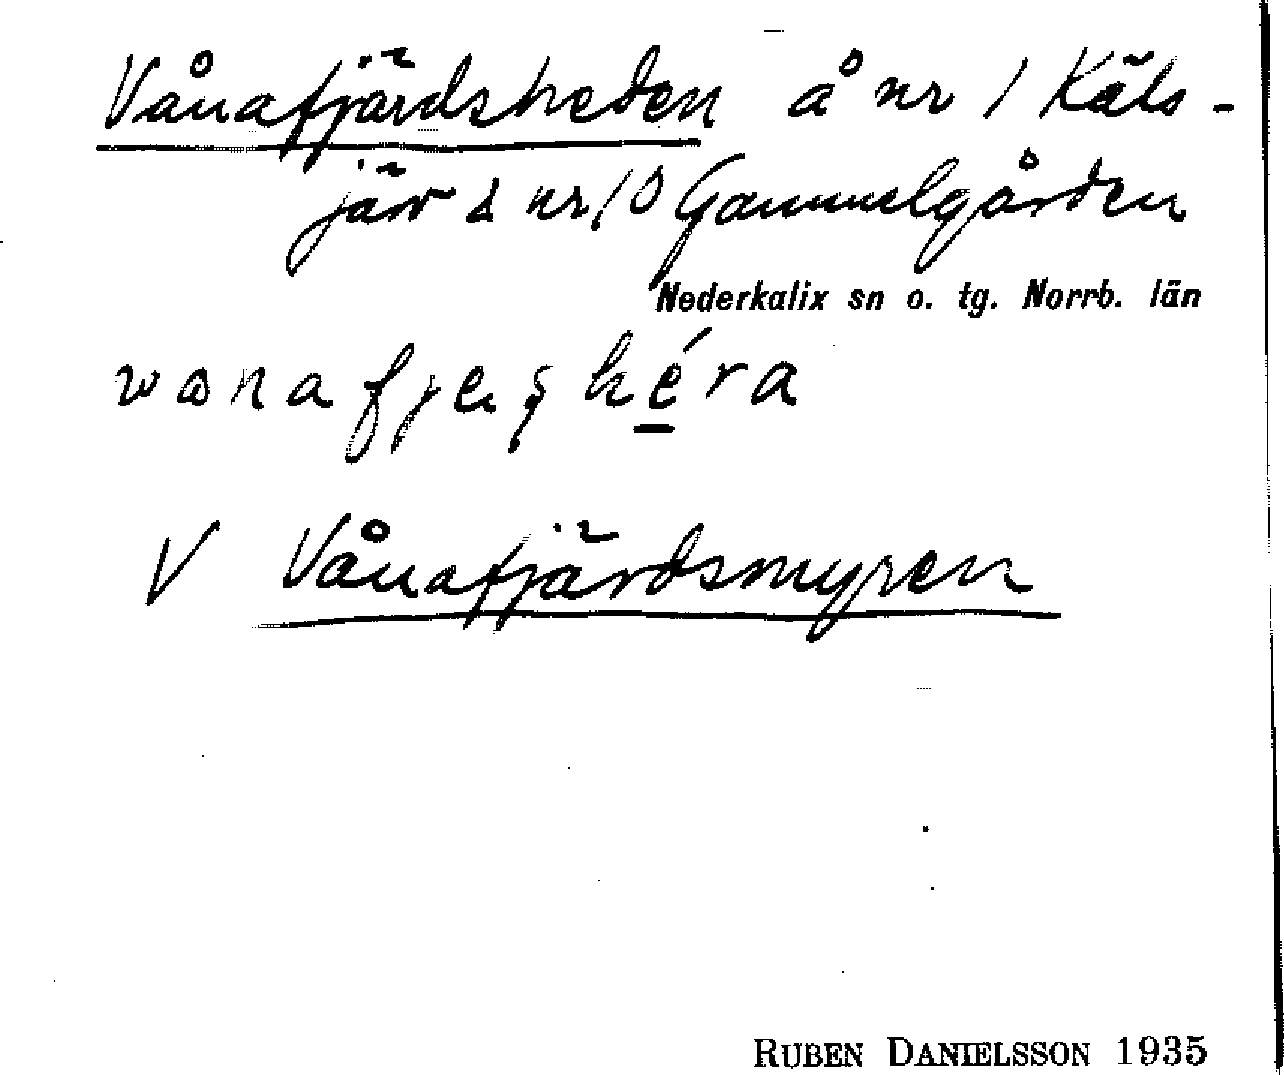 Vånafjärdsheden å nr 1 Käls-
järv & nr 10 Gammelgården
Nederkalix sn o. tg. Norrb. län
V Vånafjärdsmyren
RUBEN DANIELSSON 1935